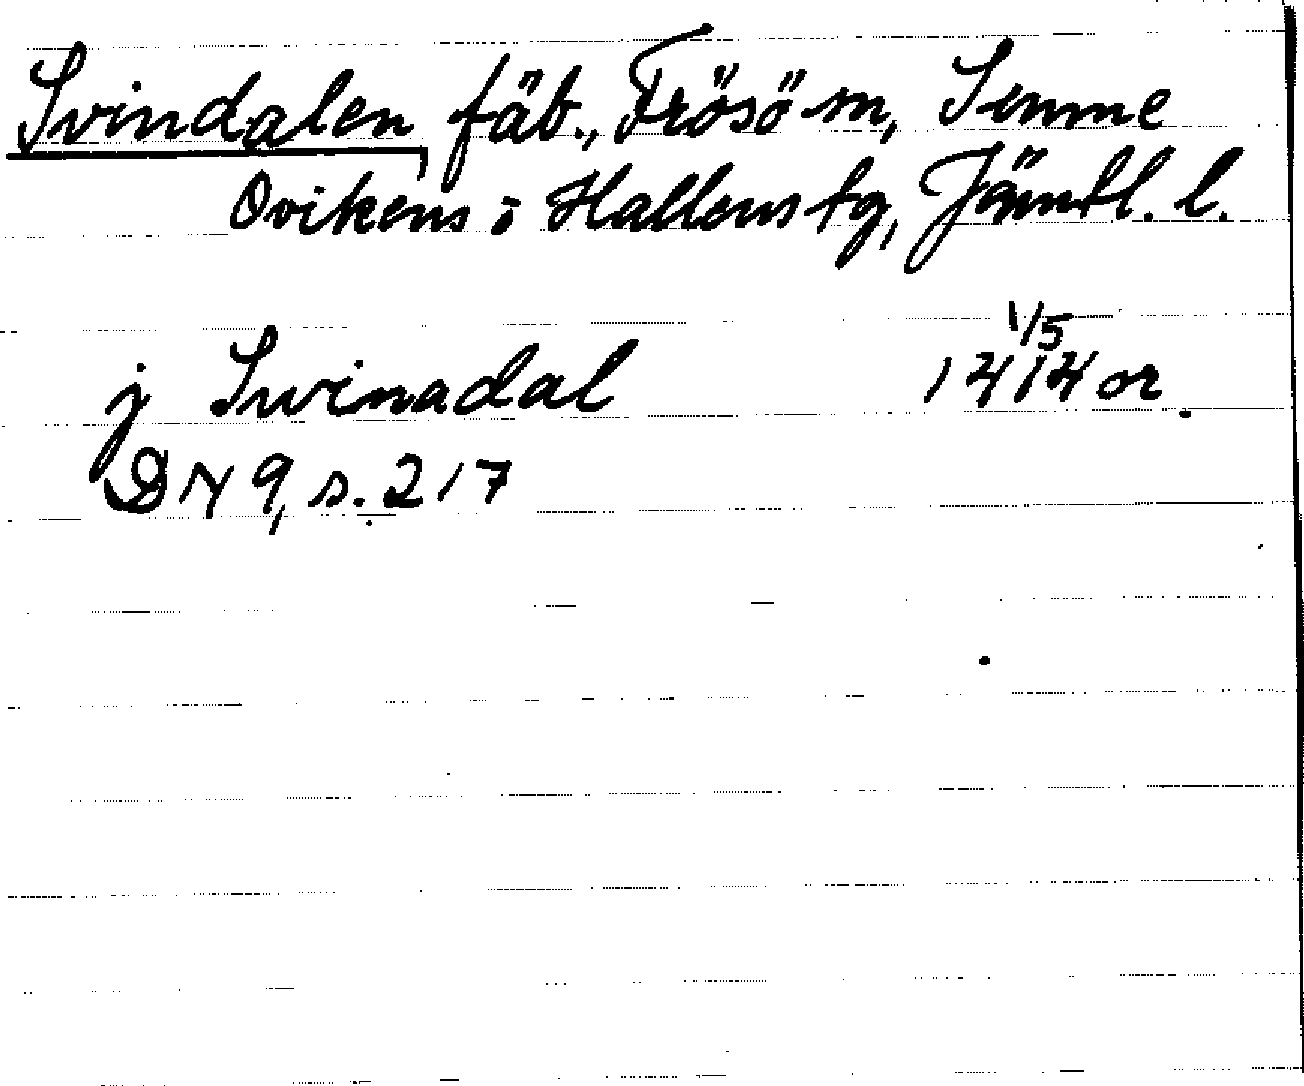 Svindalen fäb., Frösö sn, Sunne
Ovikens o Hallens tg, Jämtl. l.
1/5
j Swinadal 1414 or.
DN 9, s. 217